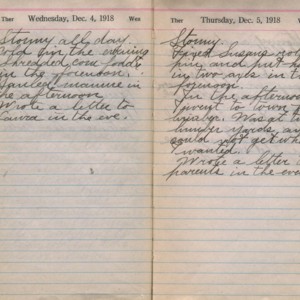 Ther Wednesday, Dec. 4, 1918 Wea
Stormy all day.
in the evening
Shredded corn fodder
in the forenoon.
Hauled manure in
the afternoon
Wrote a letter to
Laura in the eve.
Ther Thursday, Dec. 5, 1918
Stormy.
Susans
and put
in two in the
forenoon.
In the afternoon
I went to town
Was at
lumber yards and
could not get what
wanted.
Wrote a letter
parents in the eve